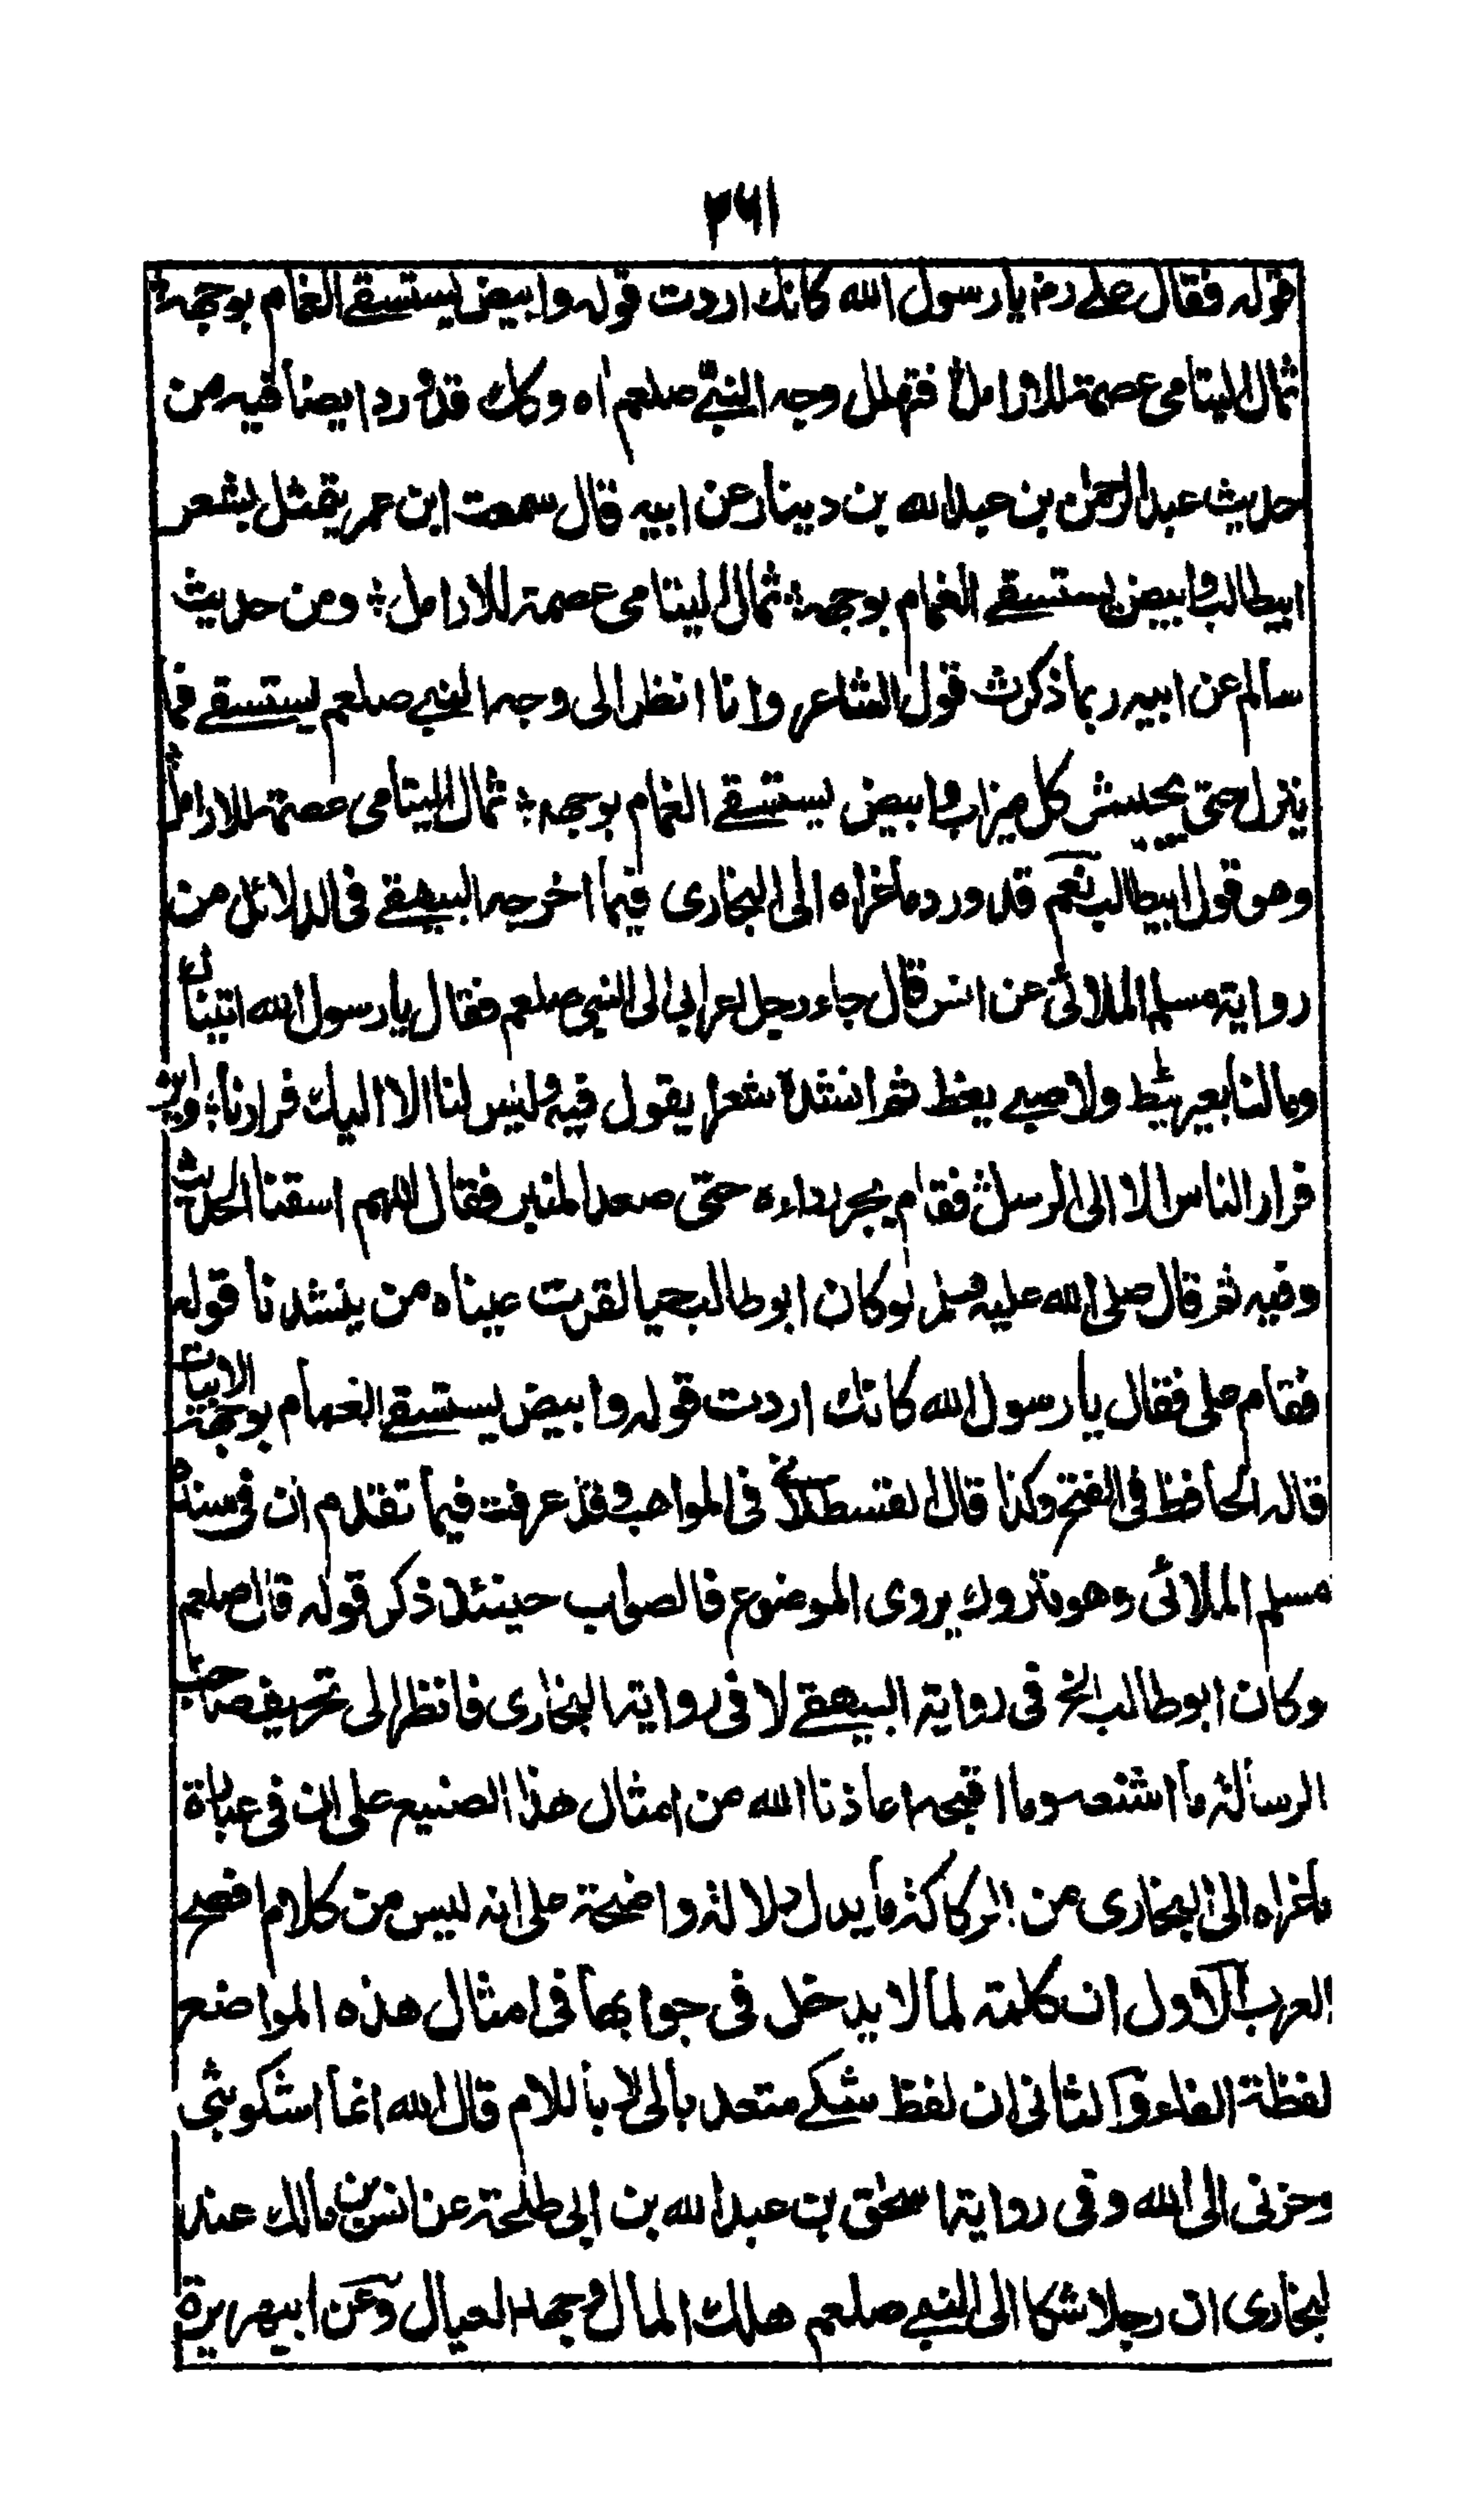 ٢٦١
قوله فقال علي رض يا رسول الله كانك اردت قوله وابيض يستسقي الغمام بوجهه ؛
ثمال اليتامى عصمة للارامل ؛ فتهلل وجه النبي صلعم اه وكك قد ورد ايضا فيه من
حديث عبد الرحمن بن عبد الله بن دينار عن ابيه قال سمعت ابن عمر يتمثل بشعر
ابيطالب وابيض يستسقي الغمام بوجهه ؛ ثمال اليتامى عصمة للارامل ؛ ومن حديث
سالم عن ابيه ربما ذكرت قول الشاعر وانا انظر الى وجه النبي صلعم يستسقي فما
ينزل حتى يجيش كل ميزاب وابيض يستسقي الغمام بوجهه ؛ ثمال اليتامى عصمة للارامل ؛
وهو قول ابيطالب نعم قد ورد ماعزاه الى البخاري فيما اخرجه البيهقي في الدلائل من
رواية مسلم الملائي عن انس قال جاء رجل اعرابي الى النبي صلعم فقال يا رسول الله اتيناك
وما لنا بعير يئط ولا صبي يغط ثم انشد شعرا يقول فيه وليس لنا الا اليك فرارنا ؛ واين
فرار الناس الا الى الرسل ؛ فقام يجر رداءه حتى صعد المنبر فقال اللهم اسقنا الحديث
وفيه ثم قال صلى الله عليه وسلم لو كان ابو طالب حيا لقرت عيناه من ينشدنا قوله
فقام علي فقال يا رسول الله كانك اردت قوله وابيض يستسقي الغمام بوجهه الابيات
قاله الحافظ في الفتح وكذا قال القسطلاني في المواهب وقد عرفت فيما تقدم ان في سنده
مسلم الملائي وهو متروك يروى الموضوع فالصواب حينئذ ذكر قوله قال صلعم
وكان ابو طالب الخ في رواية البيهقي لا في رواية البخاري فانظر الى تحريف صاحب
الرسالة ما اشنعه وما اقبحه اعاذنا الله من امثال هذا الصنيع على ان في عبارة
ماعزاه الى البخاري من الركاكة ما يدل دلالة واضحة على انه ليس من كلام افصح
العرب الاول ان كلمة لما لا يدخل في جوابها في امثال هذه المواضع
لفظة الفاء والثاني ان لفظ شكي متعد بالى لا باللام قال الله انما اشكو بثي
وحزني الى الله وفي رواية اسحق بن عبد الله بن ابي طلحة عن انس بن مالك عند
البخاري ان رجلا شكا الى النبي صلعم هلاك المال وجهد العيال وعن ابيهريرة